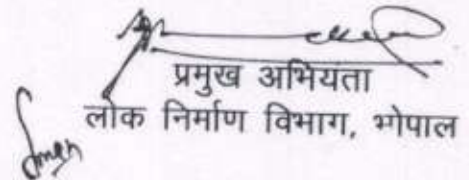 प्रमुख अभियंता
लोक निर्माण विभाग, भोपाल